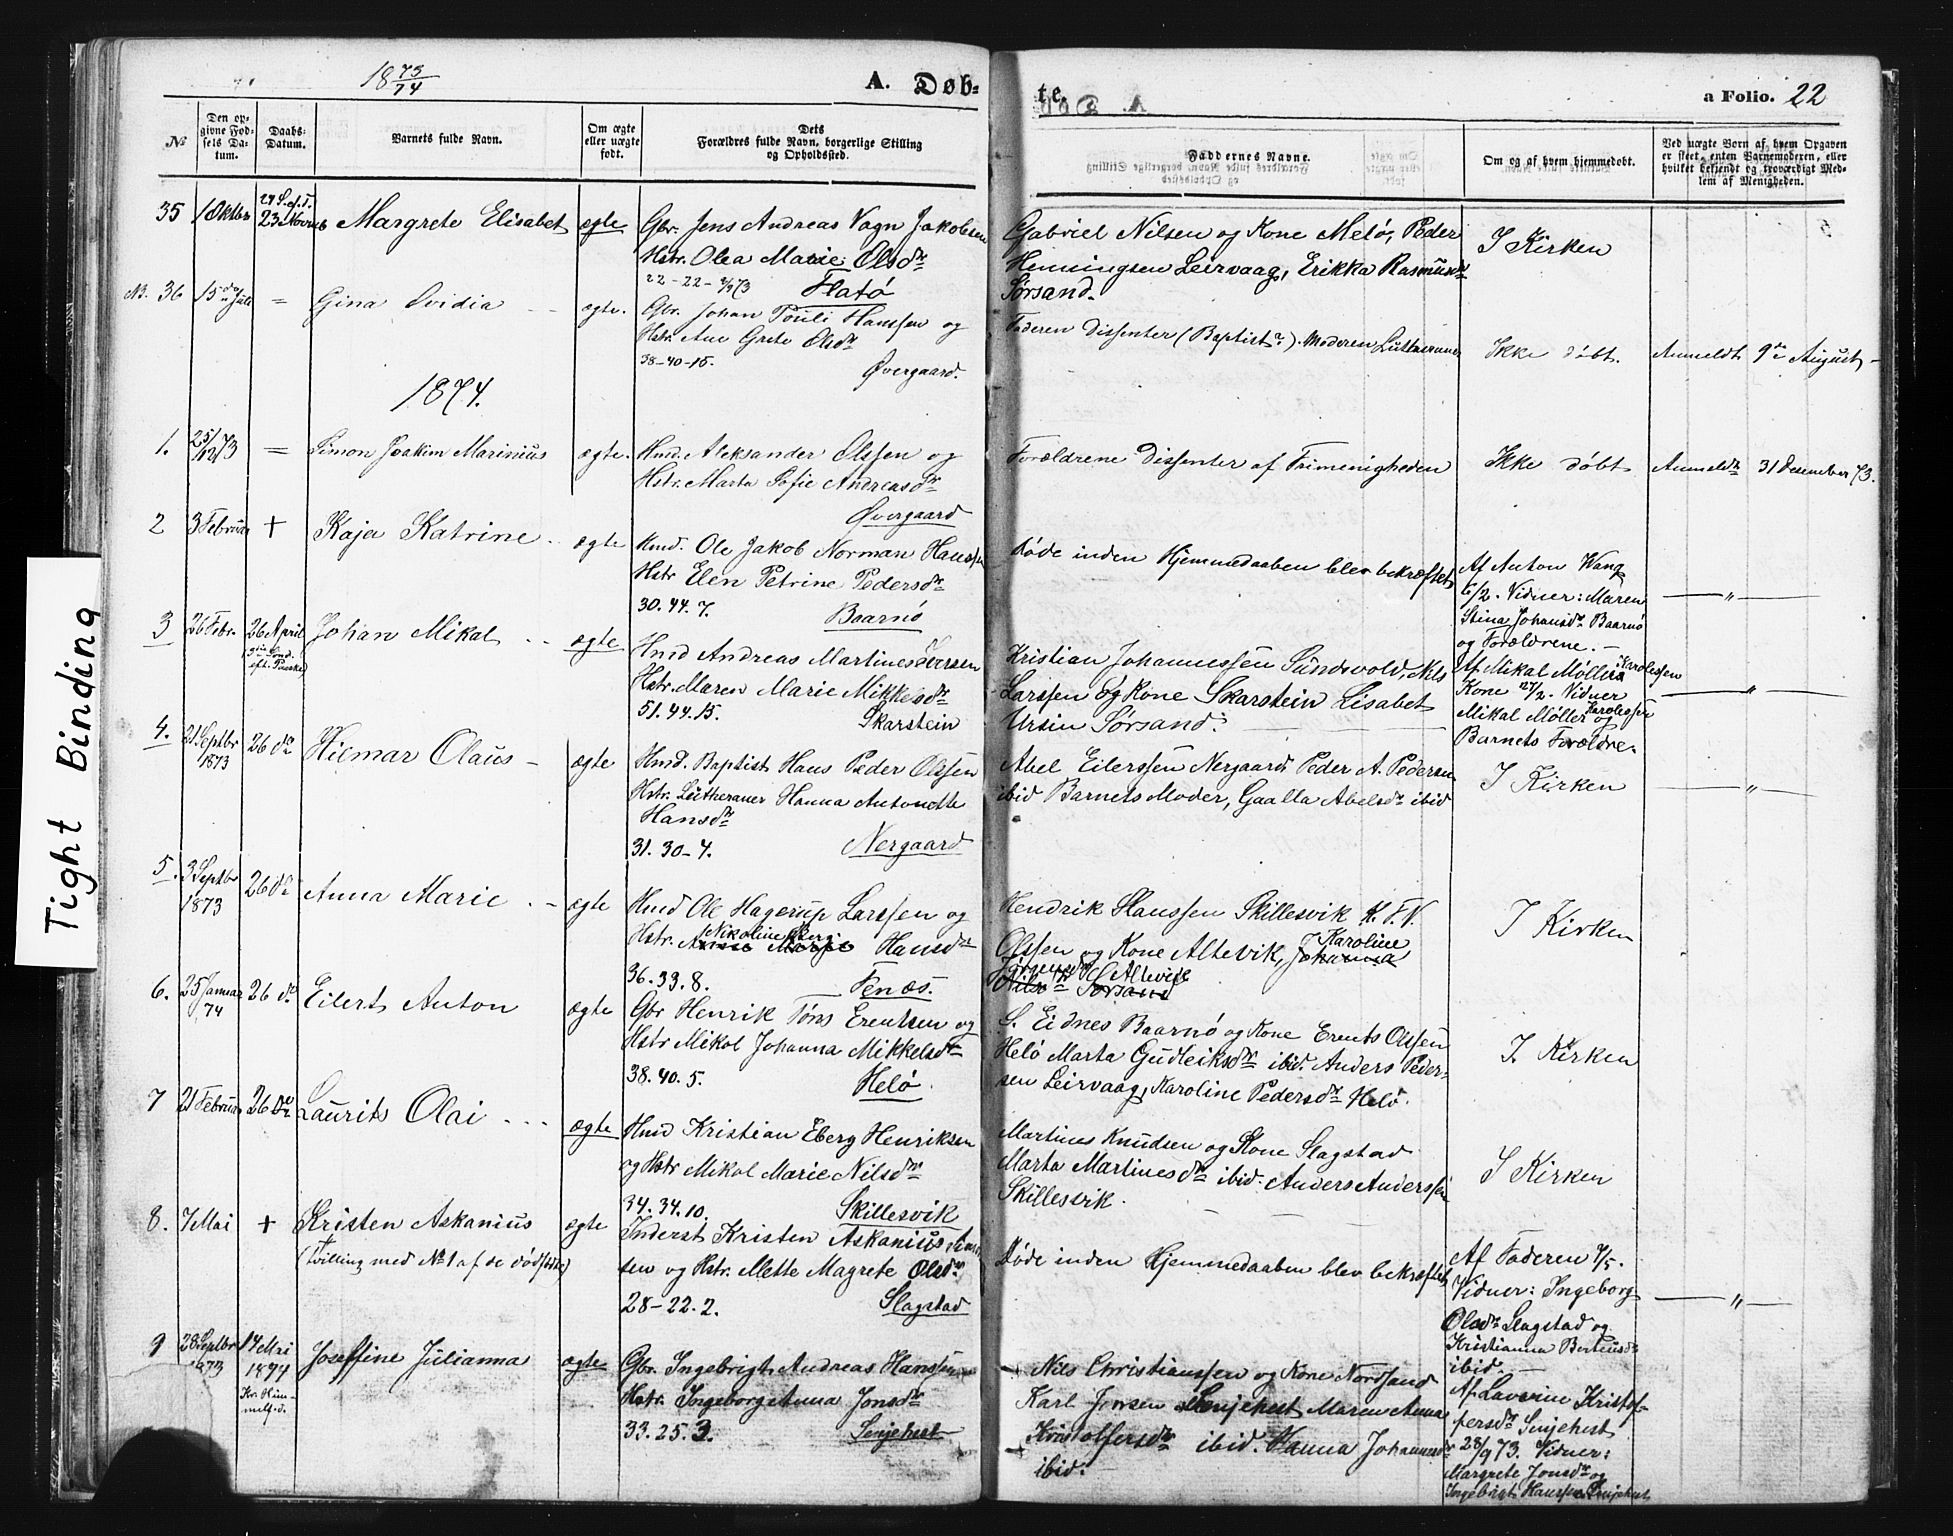 18 73/74
A. Døb-
te.
a Folio. 22
№
Den op-
givne Fød-
sels Da-
tum.
Daabs-
Datum.
Barnets fulde Navn.
Om ægte
eller uægte
født.
Dets
Forældres fulde Navn, borgerlige Stilling
og Opholdssted.
Faddernes Navne.
Om og af hvem hjemmedøbt.
Ved uægte Børn af hvem Opgaven
er skeet, enten Barnemoderen, eller
hvilket bekjendt og troværdigt Med-
lem af Menigheden.
35 1 Oktbr 23 Novemb Margrete Elisabet ægte Gbr. Jens Andreas Vagn Jakobsen
Hstr. Olea Marie Olsdr
Flatø
Gabriel Nilsen og Kone Melø, Peder
Henningsen Leirvaag, Erikka Rasmusdr
Sørsand.
I Kirken
NB. 36 15 Juli = Gina Ovidia ægte. Gbr. Johan Pouli Hanssen og
Hstr. Ane Grete Olsdr
38-40-15. Øvergaard.
Faderen Dissenter (Baptist). Moderen Lutheraner
Ikke døbt. Anmeldt 9de August
1874.
1. 25/12 73 = Simon Joakim Marinius ægte. Hmd. Aleksander Olssen og
Hstr. Marta Sofie Andreasdr
Øvergaard
Forældrene Dissenter af Frimenigheden
Ikke døbt Anmeldt 31 Desember 73.
2 3 Februar + Kaja Katrine ægte Hmd. Ole Jakob Norman Hanssen
Hstr Elen Petrine Pedersdr
30. 44. 7. Baarnø
Døde inden Hjemmedaaben blev bekræftet
Af Anton Wang
6/2. Vidner: Maren
Stina Johansdr Baarnø
og Forældrene.
3 26 Febr. 26 April Johan Mikal ægte Hmd Andreas Martines Larssen
Hstr. Maren Marie Mikkelsdr
51. 44. 15. Skarstein
Kristian Johannessen Sundsvold, Nils
Larssen og Kone Skarstein Lisabet
Ursin Sørsand.
Af Mikal Møller Karolessen
Kone 27/2. Vidner
Mikal Møller Karolessen og
Barnets Forældre.
4. 21 Septbr 1873 26 do Hilmar Olaus ægte Hmd. Baptist Hans Peder Olssen
Hstr. Lutheraner Hanna Antonette
Hansdr
31. 30-4. Nergaard
Abel Eilerssen Nergaard Peder A. Pedersen
ibid Barnets Moder, Gaalla Abelsdr ibid
I Kirken
5. 3 Septbr 1873 26 do Anna Marie ægte Hmd Ole Hagerup Larssen og
Hstr. Nikoline Berg Hansdr
36. 33. 8. Fenæs.
Hendrik Hanssen Skillesvik K. F. N.
Olssen og Kone Altevik, Karoline
Altevik
I Kirken
6. 25 Januar 74 26 do Eilert Anton ægte Gbr Henrik Tøns Erentsen og
Hstr Mikol Johanna Mikkelsdr
38. 40. 5. Helø.
S. Eidnes Baarnø og Kone Erents Olssen
Helø Marta Gudleiksdr ibid. Anders Peder-
sen Leirvaag, Karoline Pedersdr Helø.
I Kirken
7 21 Februar 26 do Laurits Olai ægte Hmd Kristian Eberg Henriksen
og Hstr Mikol Marie Nilsdr
34. 34. 10. Skillesvik
Martines Knudsen og Kone Slagstad
Marta Martinesdr ibid. Anders Anderssen
Skillesvik.
I Kirken
8. 7 Mai + Kristen Askanius ægte
(Tvilling med No 1 af de dødfødte)
Inderst Kristen Askanius
sen og Hstr. Mette Magrete Olsdr
28-22. 2. Slagstad
Døde inden Hjemmedaaben blev bekræftet
Af Faderen 7/5.
Vidner: Ingeborg
Olsdr Slagstad og
Kristianna Berteusdr
ibid.
9 28 Septbr 1873 14 Mai 1874 Kr. Him-
melf.d. Joseffine Julianna ægte Gbr. Ingebrigt Andreas Hanssen
Hstr. Ingeborg Anna Jonsdr
33. 25. 3. Senjehest
Nils Christianssen og Kone Nordsand
Karl Jonsen Senjehest Maren Anna
Kristoffersdr ibid. Hanna Johannesdr
ibid.
Af Lavrine Kristof-
fersdr Senjehest
28/9 73. Vidner:
Margrete Jonsdr og
Ingebrigt Hanssen Senjehest
Tight Binding